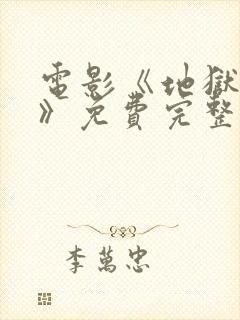 電影《地獄
》免費完整
李萬忠